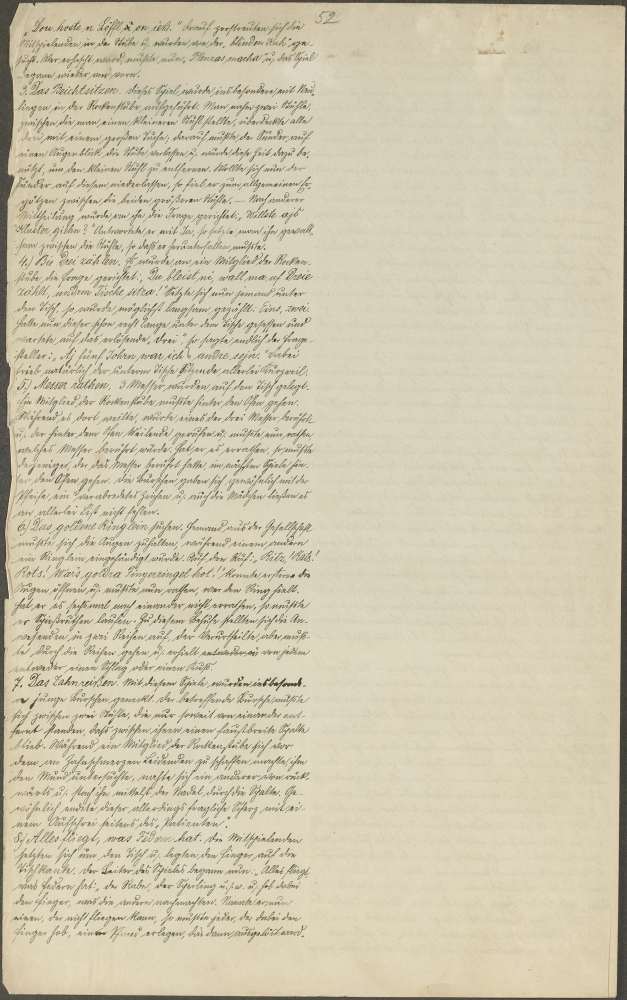 52
„Dou hoste n Löffl u on ick." Drauf zerstreuten sich die
Mitspielenden in der Stube u. wurden von der „blinden Kuh" ge-
sucht. Wer erhascht ward, mußte nun machn u. das Spiel
begann wieder von vorn.
3. Das Beichtsitzen. Dieses Spiel wurde insbesondere mit Neu-
lingen in der Rockenstube aufgeführt. Man nahm zwei Stühle,
zwischen die man einen kleineren Stuhl stellte, überdeckte alle
drei mit einem großen Tuche; darauf mußte der Sünder auf
einen Augenblick die Stube verlassen u. wurde diese Zeit dazu be-
nützt, um den kleinen Stuhl zu entfernen. Wollte sich nun der
Sünder auf diesem niederlassen, so fiel er zum allgemeinen Er-
götzen zwischen die beiden größeren Stühle. — Nach anderer
Mittheilung wurde an ihn die Frage gerichtet: „Willste ajs
gihn?" Antwortete er mit Ja, so setzte man ihn gewalt-
sam zwischen die Stühle, so daß er herunterfallen mußte.
4.) Bis Drei zählen. Es wurde an ein Mitglied der Rocken-
stube die Frage gerichtet: „Du bleist ni, wall ma af Dreie
zählt, undrm Tische sitza!" Setzte sich nun jemand unter
den Tisch, so wurde möglichst langsam gezählt: Eins, zwei.
Hatte nun dieser schon recht lange unter dem Tische gesessen und
wartete auf das erlösende „Drei" so sagte endlich der Frage-
steller: „Aj fünf Johrn war ich's andre sojn." Dabei
trieb natürlich der unterm Tische Sitzende allerlei Kurzweil.
5.) Messer rathen. 3 Messer wurden auf den Tisch gelegt.
Ein Mitglied der Rockenstube mußte hinter den Ofen gehen.
Während es dort weilte, wurde eines der drei Messer berührt
u. der hinter dem Ofen Weilende gerufen u. mußte nun rathen,
welches Messer berührt wurde. Hat er es errathen, so mußte
derjenige, der das Messer berührt hatte, im nächsten Spiele hin-
ter den Ofen gehen. Die Burschen gaben sich gewöhnlich mit der
Pfeife ein verabredetes Zeichen u. auch die Mädchen ließen es
an allerlei List nicht fehlen.
6.) Das goldene Ringlein suchen. Jemand aus der Gesellschaft
mußte sich die Augen zuhalten, während einem andern
ein Ringlein eingehändigt wurde. Auf den Ruf: „Ritz! Rats!
Rots! War's goldna Fingeringel hot!" konnte ersterer die
Augen öffnen u. mußte nun rathen, wer den Ring hielt.
Hat er es sechsmal nach einander nicht errathen, so mußte
er Spießruthen laufen. Zu diesem Behufe stellten sich die An-
wesenden in zwei Reihen auf, der Verurtheilte aber muß-
te durch die Reihen gehen u. erhielt von jedem
entweder einen Schlag oder einen Kuß.
7. Das Zahnreißen. Mit diesem Spiele wurden insbesonde-
re junge Burschen geneckt. Der betreffende Bursche mußte
sich zwischen zwei Stühle, die nur soweit von einander ent-
fernt standen, daß zwischen ihnen eine faustbreite Spalte
blieb. Während ein Mitglied der Rockenstube sich vor
dem an Zahnschmerzen Leidenden zu schaffen machte, ihm
den Mund untersuchte, nahte sich ein anderer von rück-
wärts u. stach ihn mittelst der Nadel durch die Spalte. Ge-
wöhnlich endete dieser allerdings fragliche Scherz mit ei-
nem Aufschrei seitens des „Patienten".
8.) Alles fliegt, was Federn hat. Die Mitspielenden
setzten sich um den Tisch u. legten den Finger auf die
Tischkante. Der Leiter des Spieles begann nun: „Alles fliegt,
was Federn hat; der Rabe, der Sperling u. s. w. u. hob dabei
den Finger, was die andern nachmachten. Nannte er nun
einen, der nicht fliegen kann, so mußte jeder, der dabei den
Finger hob, ein Pfand erlegen, das dann ausgelöst ward.